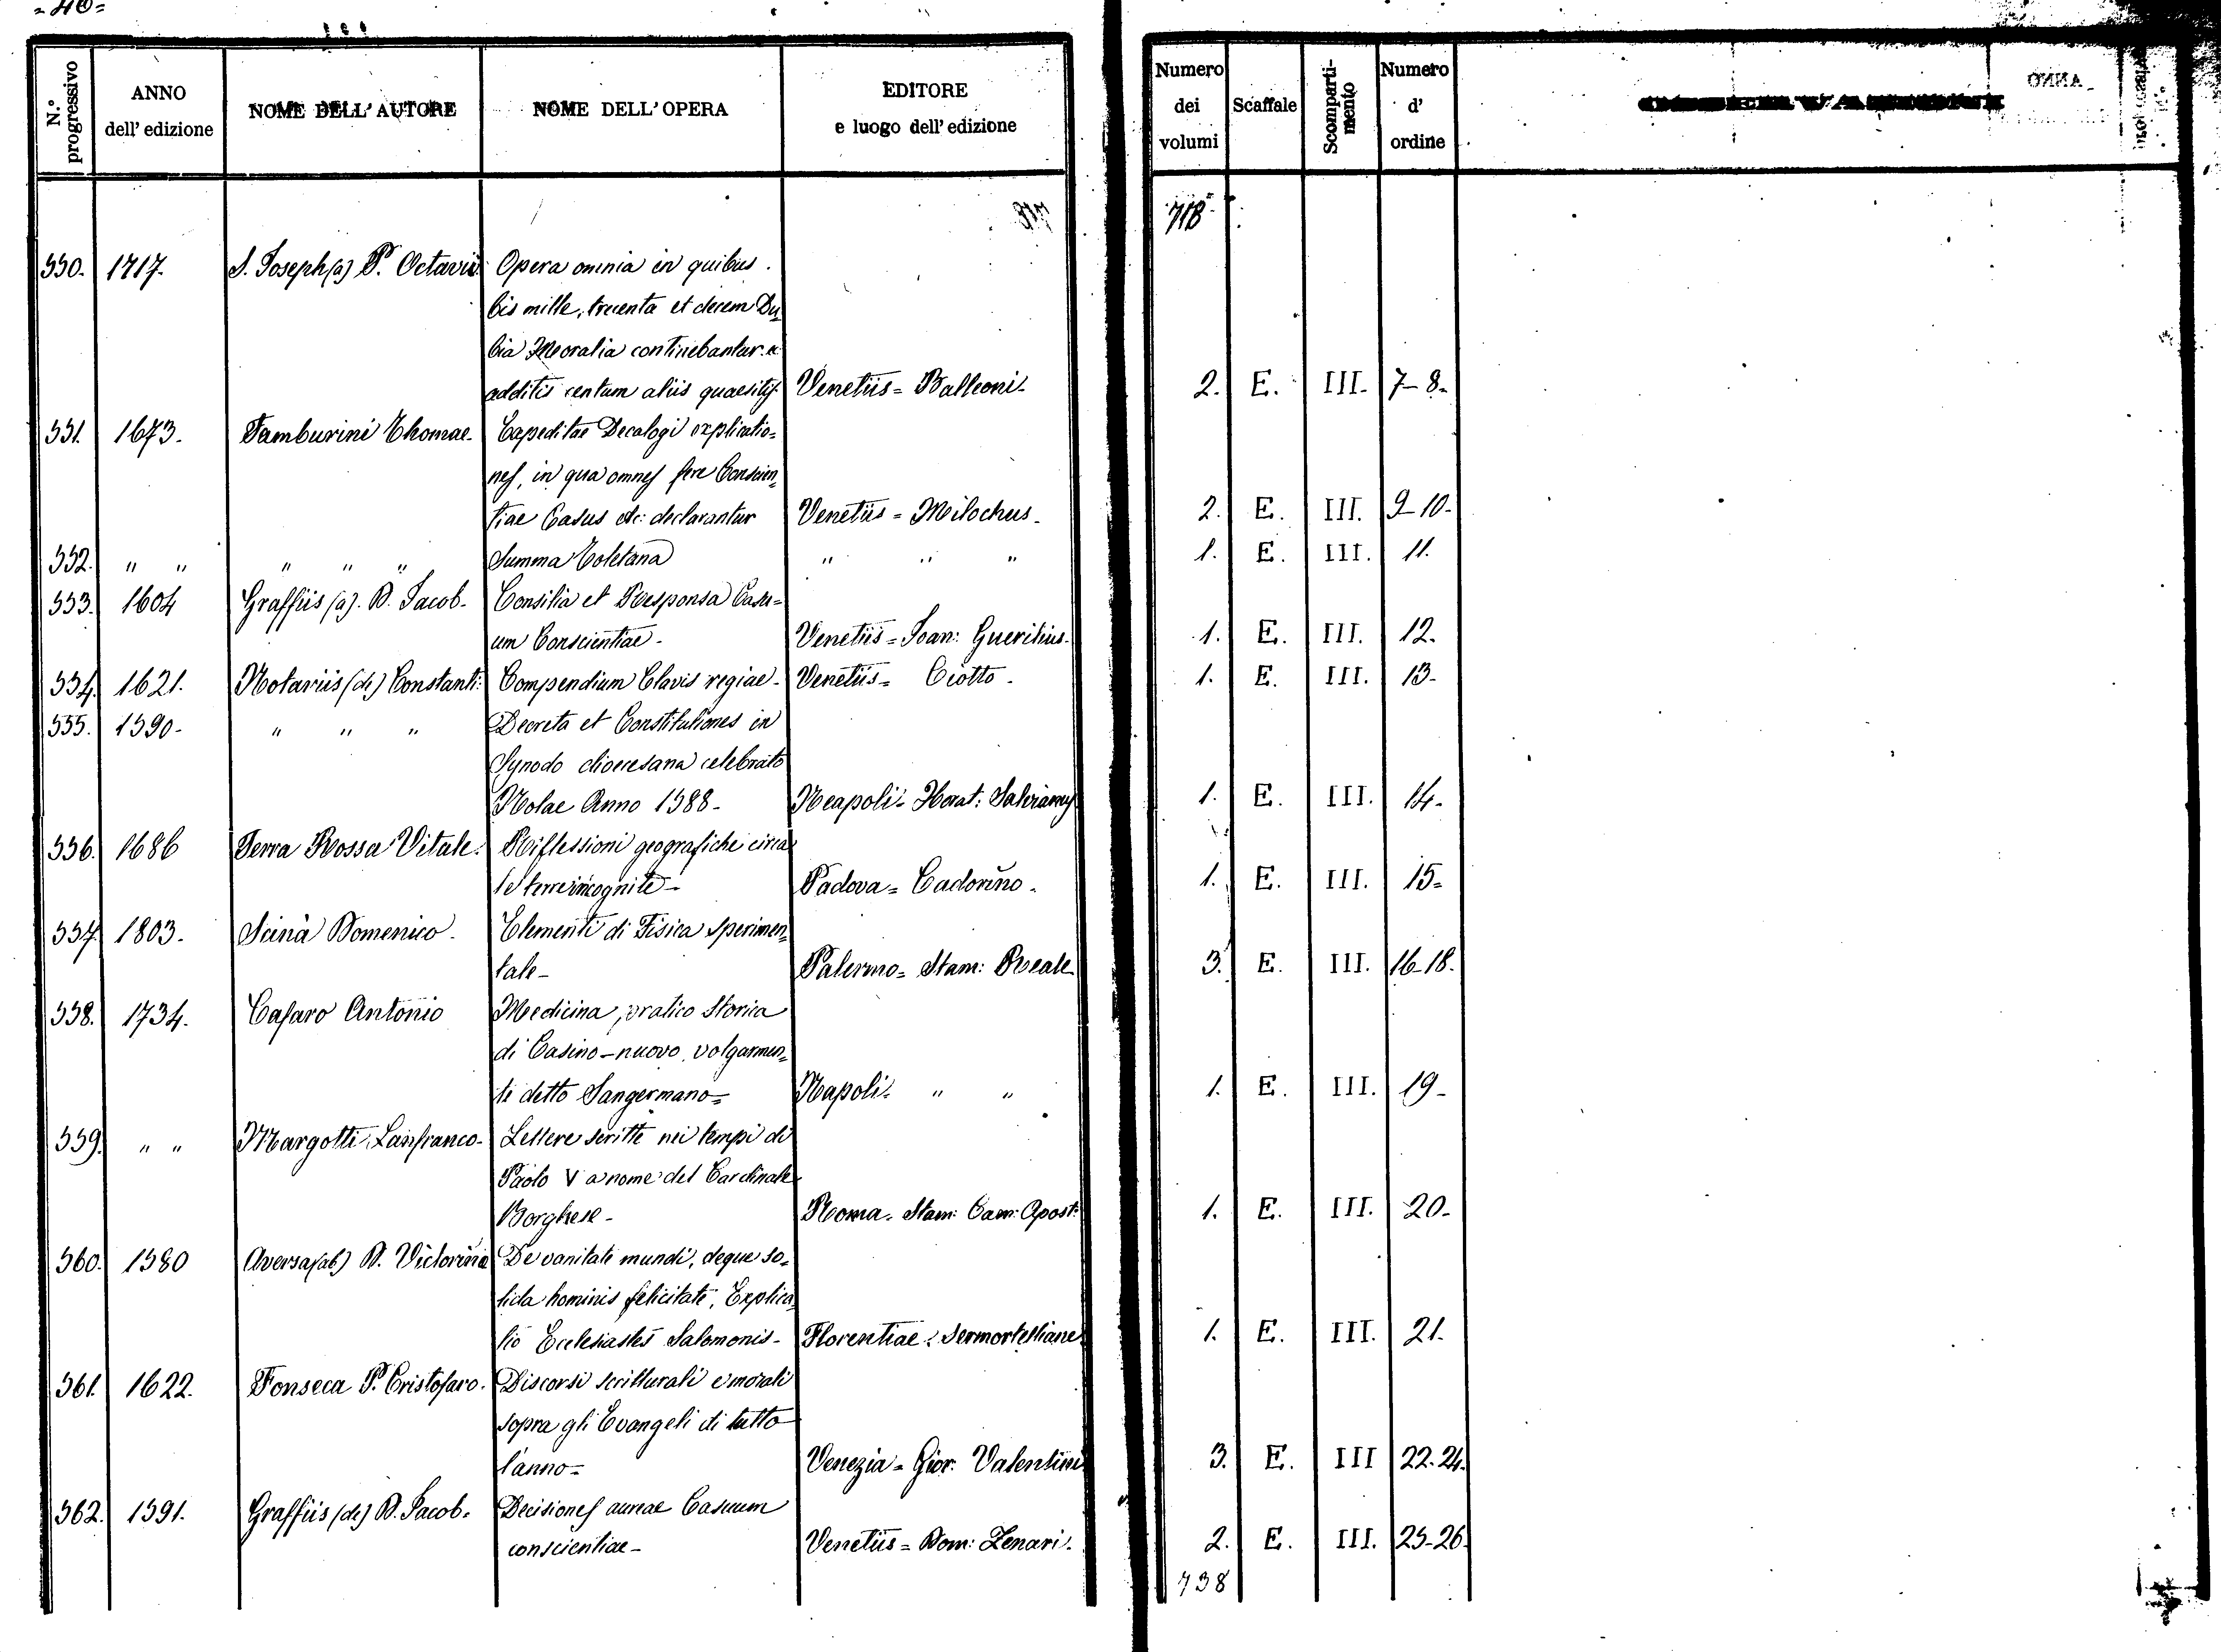 =40=
N.° progressivo
ANNO dell' edizione
NOME DELL' AUTORE
NOME DELL' OPERA
EDITORE e luogo dell' edizione
Numero dei volumi
Scaffale
Scomparti-mento
Numero d' ordine
718
550. 1717. S. Joseph (a) P. Octavii Opera omnia in quibus
bis mille, trecenta et decem Du=
bia Moralia continebantur
additis centum aliis quaesitis Venetiis = Balleoni- 2. E. III. 7-8.
551. 1673. Tamburini Thomae- Expeditae Decalogi explicatio=
nes, in qua omnes fere Conscien=
tiae Casus etc: declarantur Venetiis = Milochus- 2. E. III. 9-10-
552. " " " " " Summa Toletana " " " 1. E. III. 11.
553. 1604 Graffiis (a). D. Jacob- Consilia et Responsa Casu=
um Conscientiae- Venetiis = Joan: Guerilius- 1. E. III. 12.
554. 1621. Notariis (de) Constanti: Compendium Clavis regiae- Venetiis = Ciotto- 1. E. III. 13-
555. 1590- " " " Decreta et Constitutiones in
Synodo dioecesana celebrato
Nolae Anno 1588- Neapoli- Horat: Salvianus 1. E. III. 14-
556. 1686 Terra Rossa Vitale. Riflessioni geografiche circa
le terre incognite- Padova = Cadorino. 1. E. III. 15=
557. 1803. Scinà Domenico. Elementi di Fisica sperimen=
tale- Palermo = Stam: Reale 3. E. III. 16-18.
558. 1734. Casaro Antonio Medicina, pratico storica
di Casino-nuovo, volgarmen=
te detto Sangermano= Napoli- " " 1. E. III. 19-
559. " " Margotti Lanfranco- Lettere scritte nei tempi di
Paolo V a nome del Cardinale
Borghese- Roma. Stam: Cam: Apost: 1. E. III. 20-
560. 1580 Aversa (ab) D. Victorina De vanitate mundi, deque so=
lida hominis felicitate, Explica
tio Ecclesiastes Salomonis- Florentiae. Sermartelliane 1. E. III. 21.
561. 1622. Fonseca P. Cristofaro. Discorsi scritturali e morali
sopra gli Evangeli di tutto
l'anno= Venezia = Giov: Valentini 3. E. III 22-24.
562. 1591. Graffiis (de) D. Jacob- Decisiones aureae Casuum
conscientiae- Venetiis = Dom: Zenari. 2. E. III. 25-26.
738